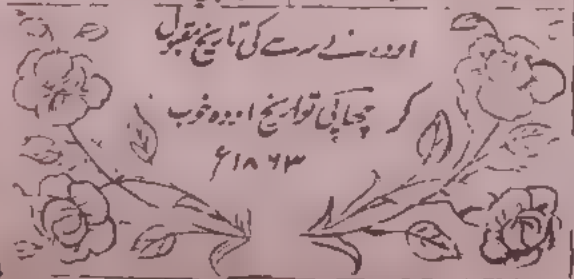 اودھ نے مدت کی تاریخ مقبول
کر چھاپی تواریخ اودھ خوب
۱۸۶۳ء